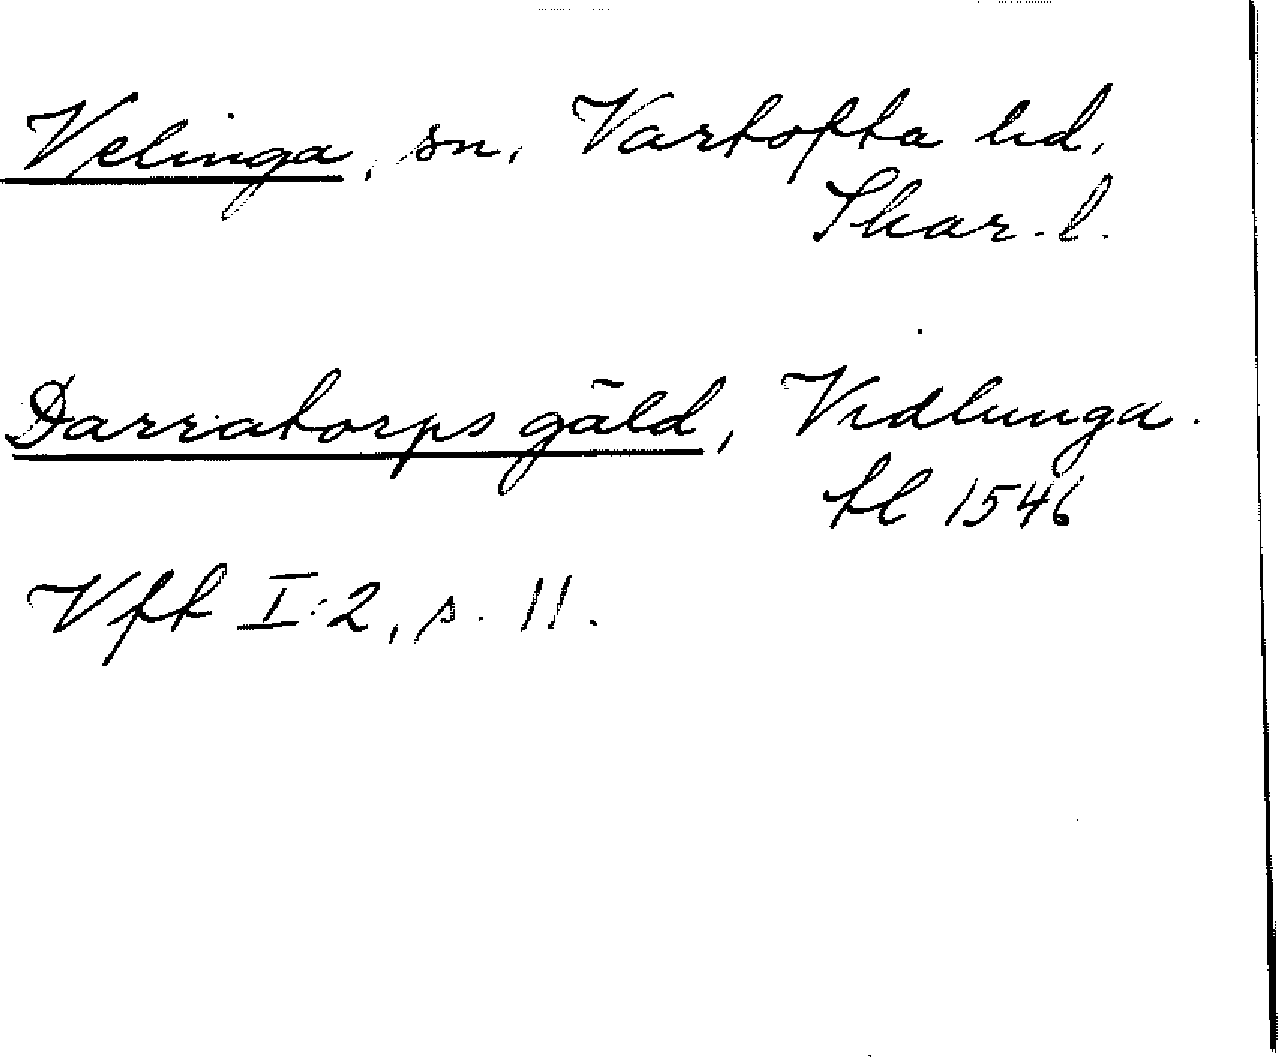 Velinga, sn, Vartofta hd,
Skar. l.
Darratorps gäld, Vidlunga.
tl 1546
Vft I:2, s. 11.